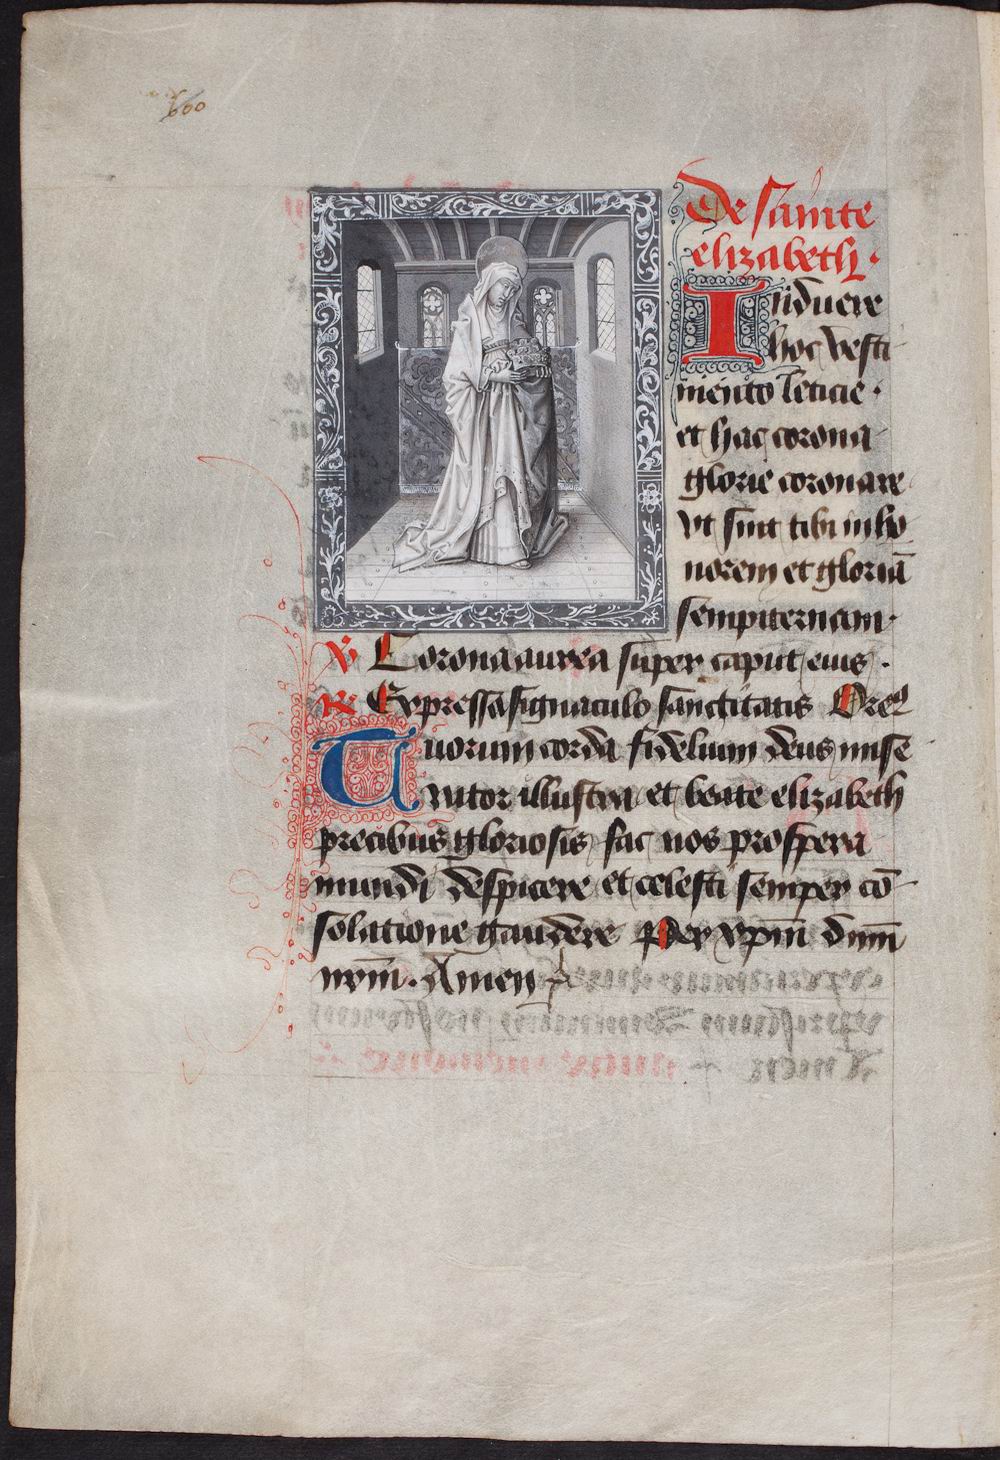 600
De sainte
elizabeth.
Induere
hoc vesti
mento leticie.
et hac corona
glorie coronare
vt sint tibi in ho
norem et gloriā
sempiternam.
V Corona aurea super caput eius.
R Expressa signaculo sanctitatis Oreꝰ
Tuorum corda fidelium deus mise
rator illustra et beate elizabeth
precibus gloriosis fac nos prospera
mundi despicere et celesti semper cō
solatione gaudere Per xpm̄ dnm̄
nrm̄. Amen